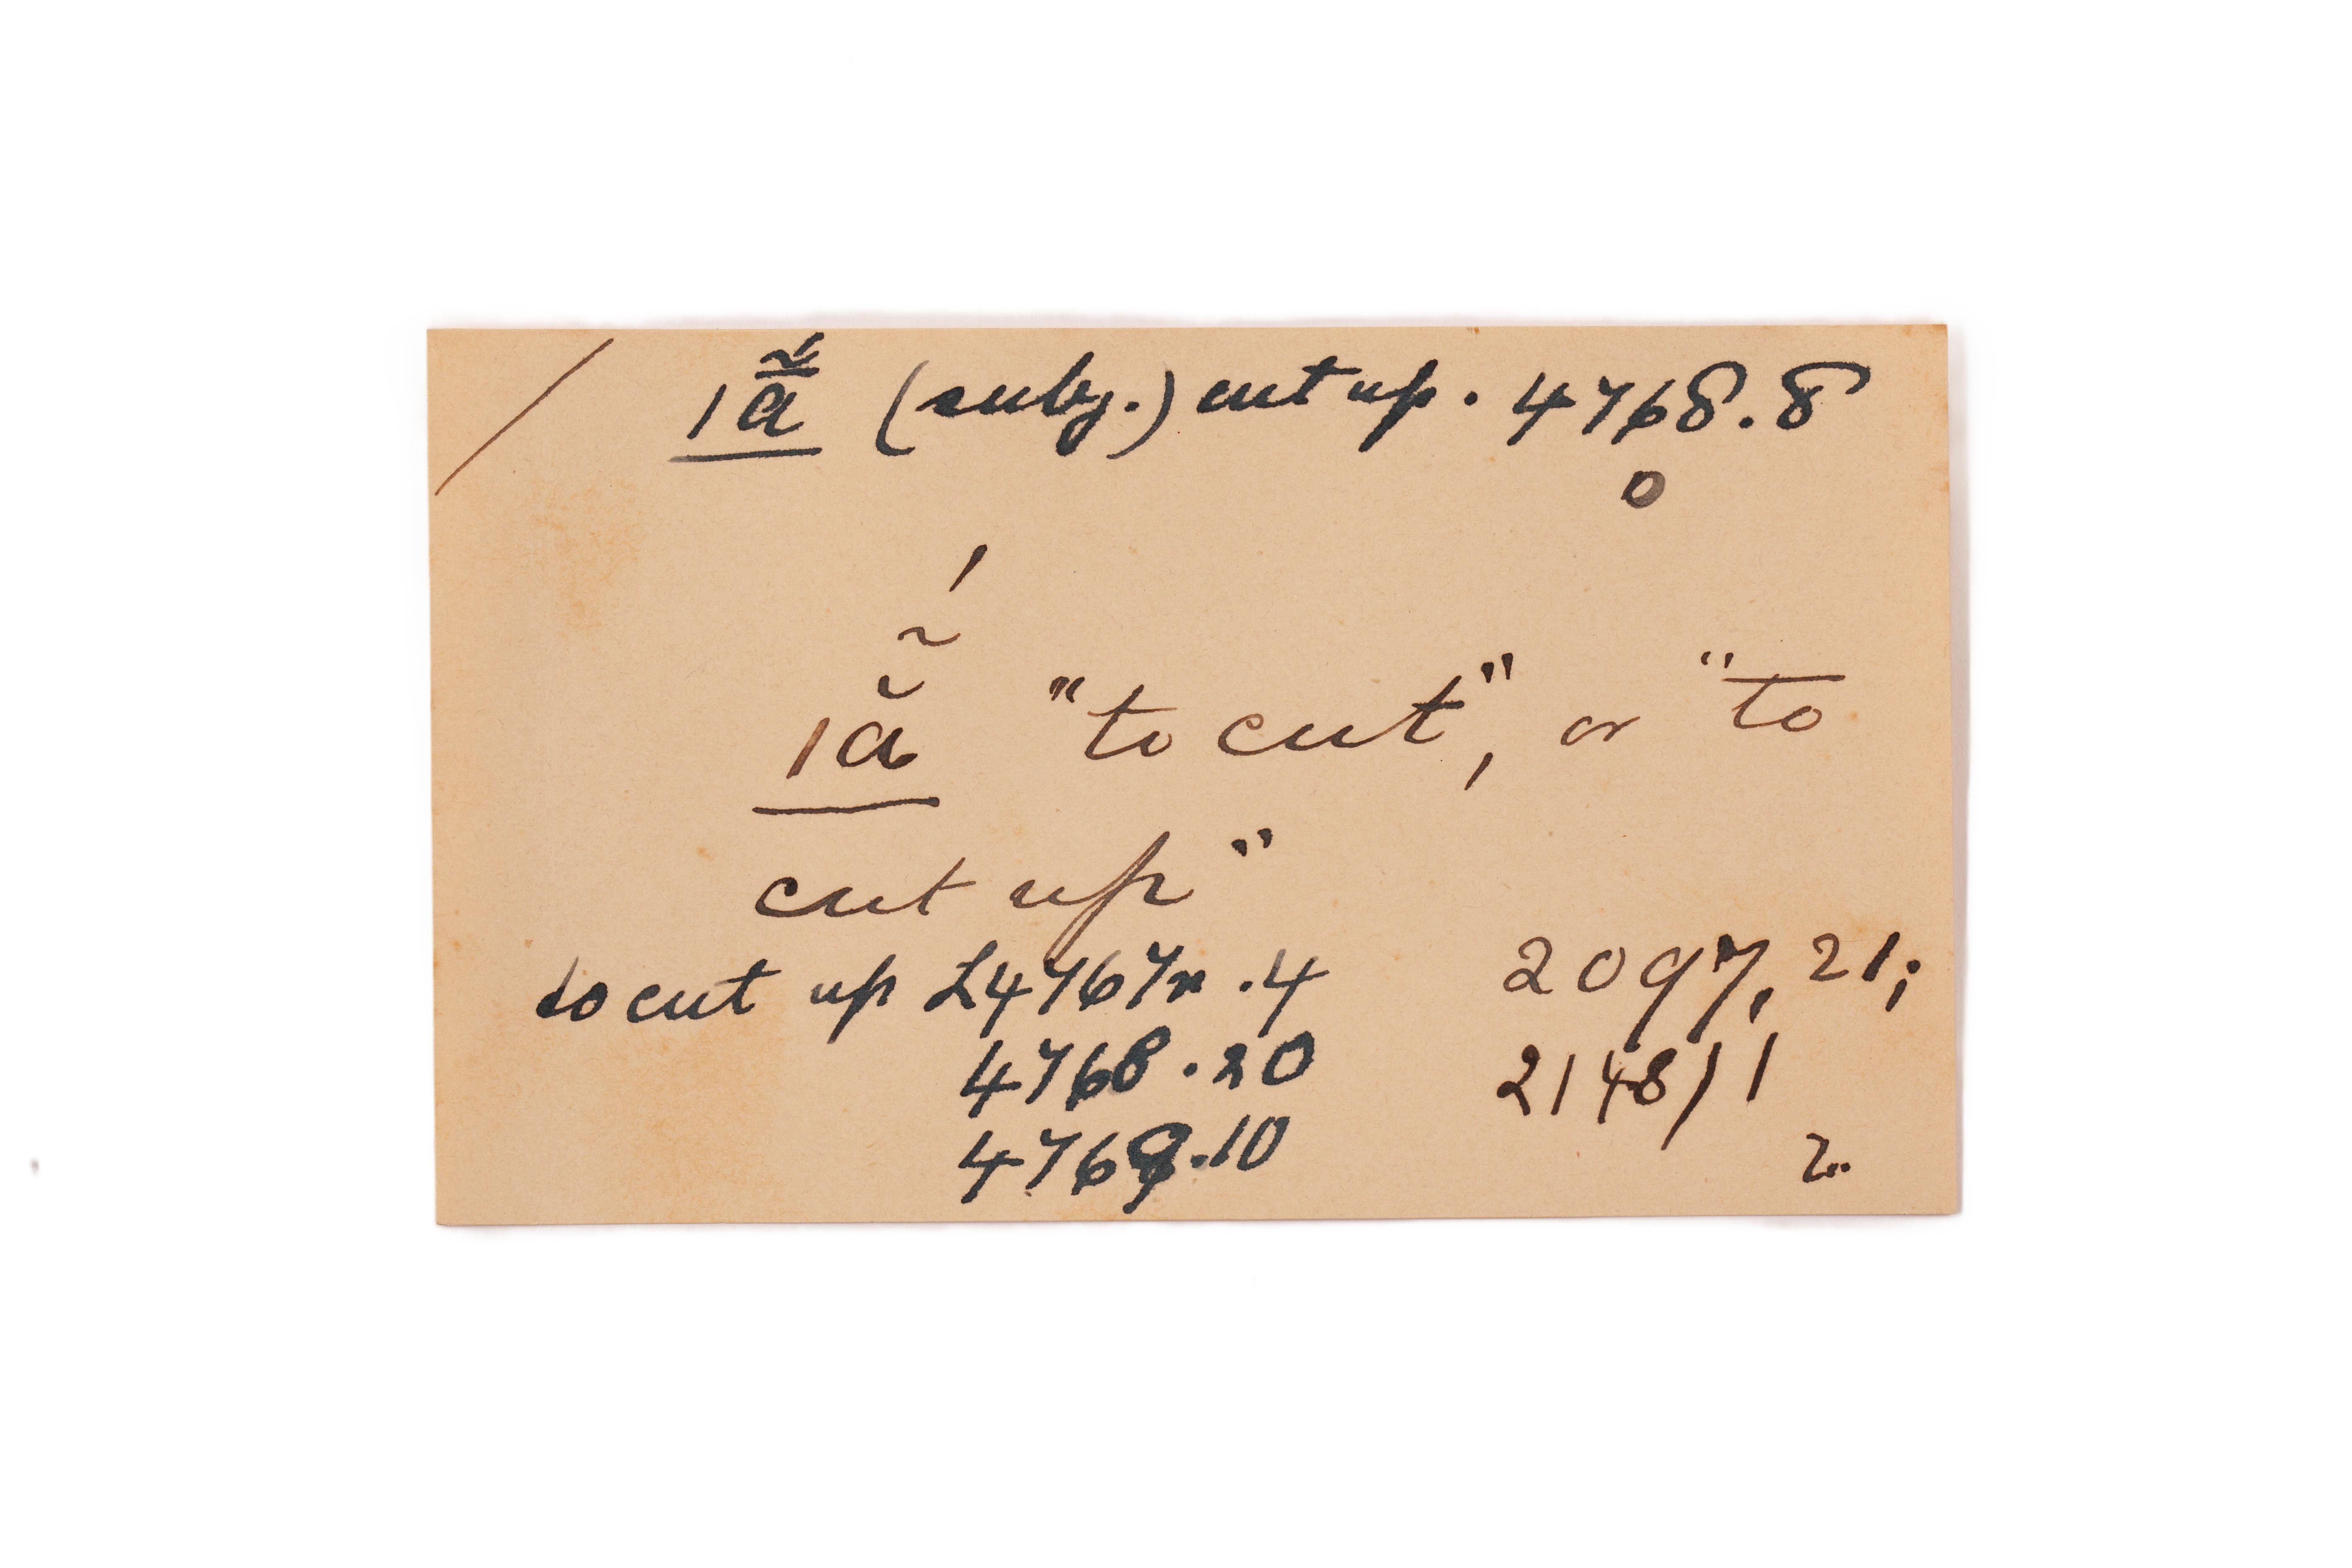 / |ā̰́ (subj.) cut up. 4768.8
0
|ẵ́ "to cut", or "to
cut up"
to cut up L4767n.4 2097, 21;
4768.20 2148/1
4769.10 2..